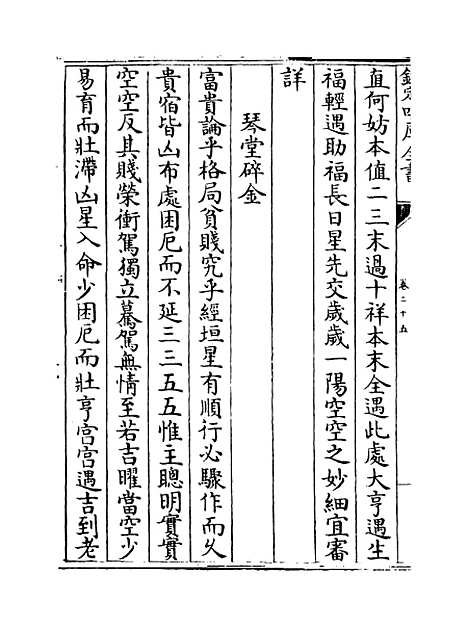 欽定四庫全書
卷二十五
直何妨本值二三末過十祥本末全遇此處大亨遇生
福輕遇助福長日星先交歲歲一陽空空之妙細宜審
詳
琴堂碎金
富貴論乎格局貧賤究乎經垣星有順行必驟作而久
貴宿皆凶布處困厄而不延三三五五惟主聰明實實
空空反其賤榮衝駕獨立驀駕無情至若吉曜當空少
易育而壯滯凶星入命少困厄而壯亨宫宫遇吉到老